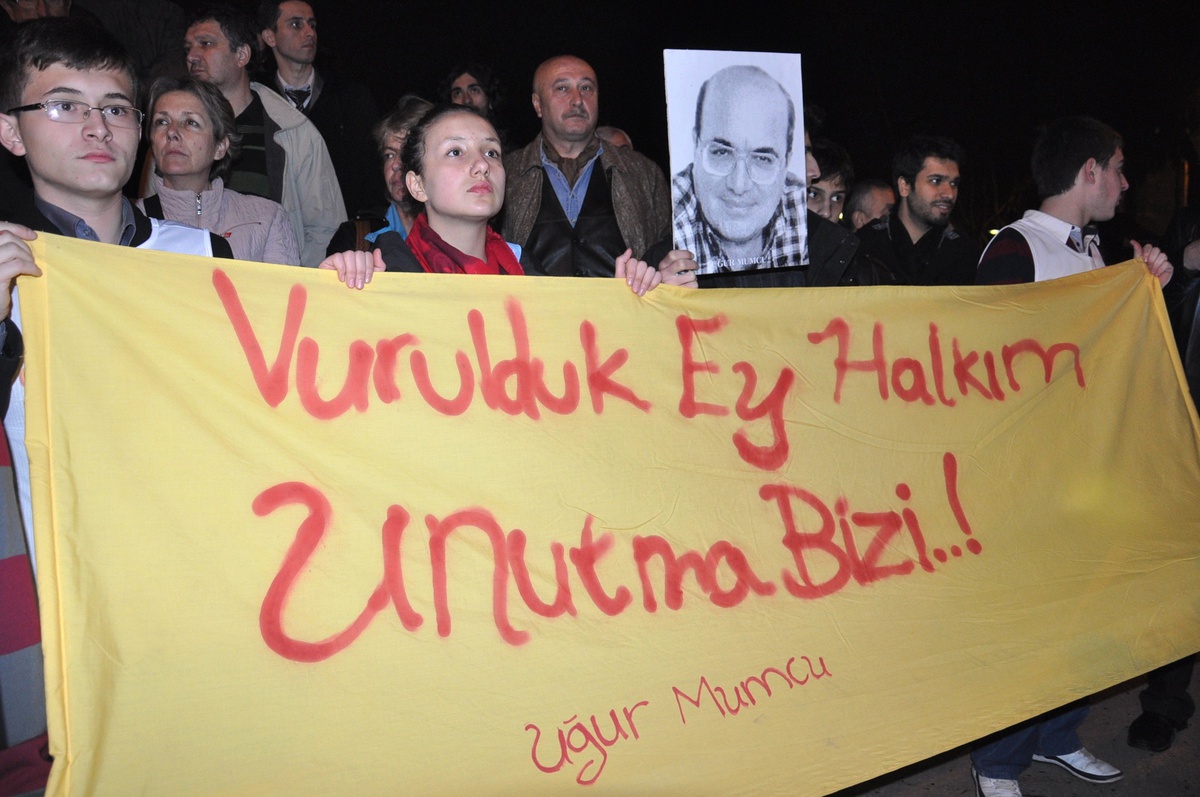 UĞUR MUMCU
Vurulduk Ey Halkım
Unutma Bizi..!
Uğur Mumcu